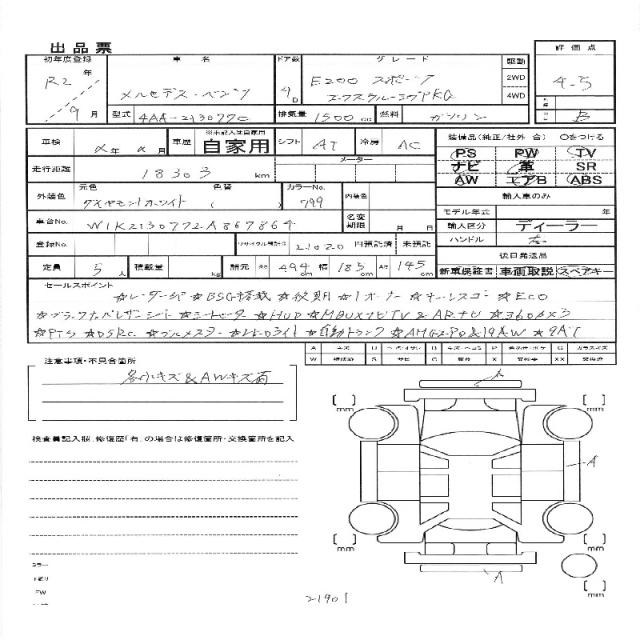 出品票
初年度登録 車名 ドア数 グレード 駆動 評価点
R2年 9月 メルセデス・ベンツ 4D E200 スポーツ 2WD 4WD 4.5
エクスクルーシブPKG
型式 4AA-213077C 排気量 1500cc 燃料 ガソリン B
車検 年 月 車歴 ※未記入は自家用 自家用 シフト AT 冷房 AC
装備品(純正/社外 含) ○をつける
PS PW TV
ナビ 革 SR
AW エアB ABS
走行距離 18303 km メーター
外装色 元色 ダイヤモンドホワイト 色替 ( カラーNo. 799 内装色
輸入車のみ
モデル年式 年
車台No. W1K2130772A867864 名変期限 月 日
輸入区分 ディーラー
ハンドル 右
登録No. リサイクル預託金 21020 円預託済 未預託
後日発送品
新車保証書 車両取説 スペアキー
定員 5人 積載量 kg 諸元 長さ 494cm 幅 185cm 高さ 145cm
セールスポイント
☆レーダーSP ☆BSG搭載 ☆後期 ☆1オーナー ☆キーレスゴー ☆ECO
☆シートヒータ ☆HUD ☆MBUXナビTV&ARナビ ☆360°カメラ
☆PTS ☆DSRC ☆ブルメスター ☆LEDライト ☆自動トランク ☆AMGスポ&19AW ☆9AT
注意事項・不具合箇所
各小キズ&AWキズ有
検査員記入欄、修復歴「有」の場合は修復箇所・交換箇所を記入
A
A
A
mm mm
mm mm
mm
21901